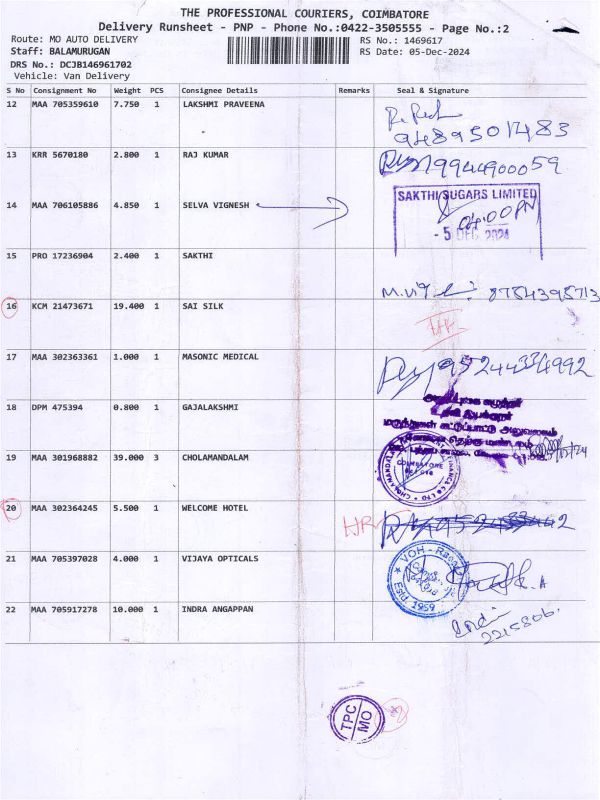 THE PROFESSIONAL COURIERS, COIMBATORE
Delivery Runsheet - PNP - Phone No.:0422-3505555 - Page No.:2
Route: MO AUTO DELIVERY RS No.: 1469617
Staff: BALAMURUGAN RS Date: 05-Dec-2024
DRS No.: DCJB146961702
Vehicle: Van Delivery
S No Consignment No Weight PCS Consignee Details Remarks Seal & Signature
12 MAA 705359610 7.750 1 LAKSHMI PRAVEENA
9489501483
13 KRR 5670180 2.800 1 RAJ KUMAR 9944900059
14 MAA 706105886 4.850 1 SELVA VIGNESH
SAKTHI SUGARS LIMITED
04:00 PM
- 5 DEC 2024
15 PRO 17236904 2.400 1 SAKTHI
8754395713
16 KCM 21473671 19.400 1 SAI SILK
17 MAA 302363361 1.000 1 MASONIC MEDICAL
18 DPM 475394 0.800 1 GAJALAKSHMI
உதவி இயக்குநர்
மருந்துகள் கட்டுப்பாட்டு அலுவலகம்
19 MAA 301968882 39.000 3 CHOLAMANDALAM
COIMBATORE
20 MAA 302364245 5.500 1 WELCOME HOTEL
21 MAA 705397028 4.000 1 VIJAYA OPTICALS
Estd. 1959
22 MAA 705917278 10.000 1 INDRA ANGAPPAN
2215806.
TPC
MO